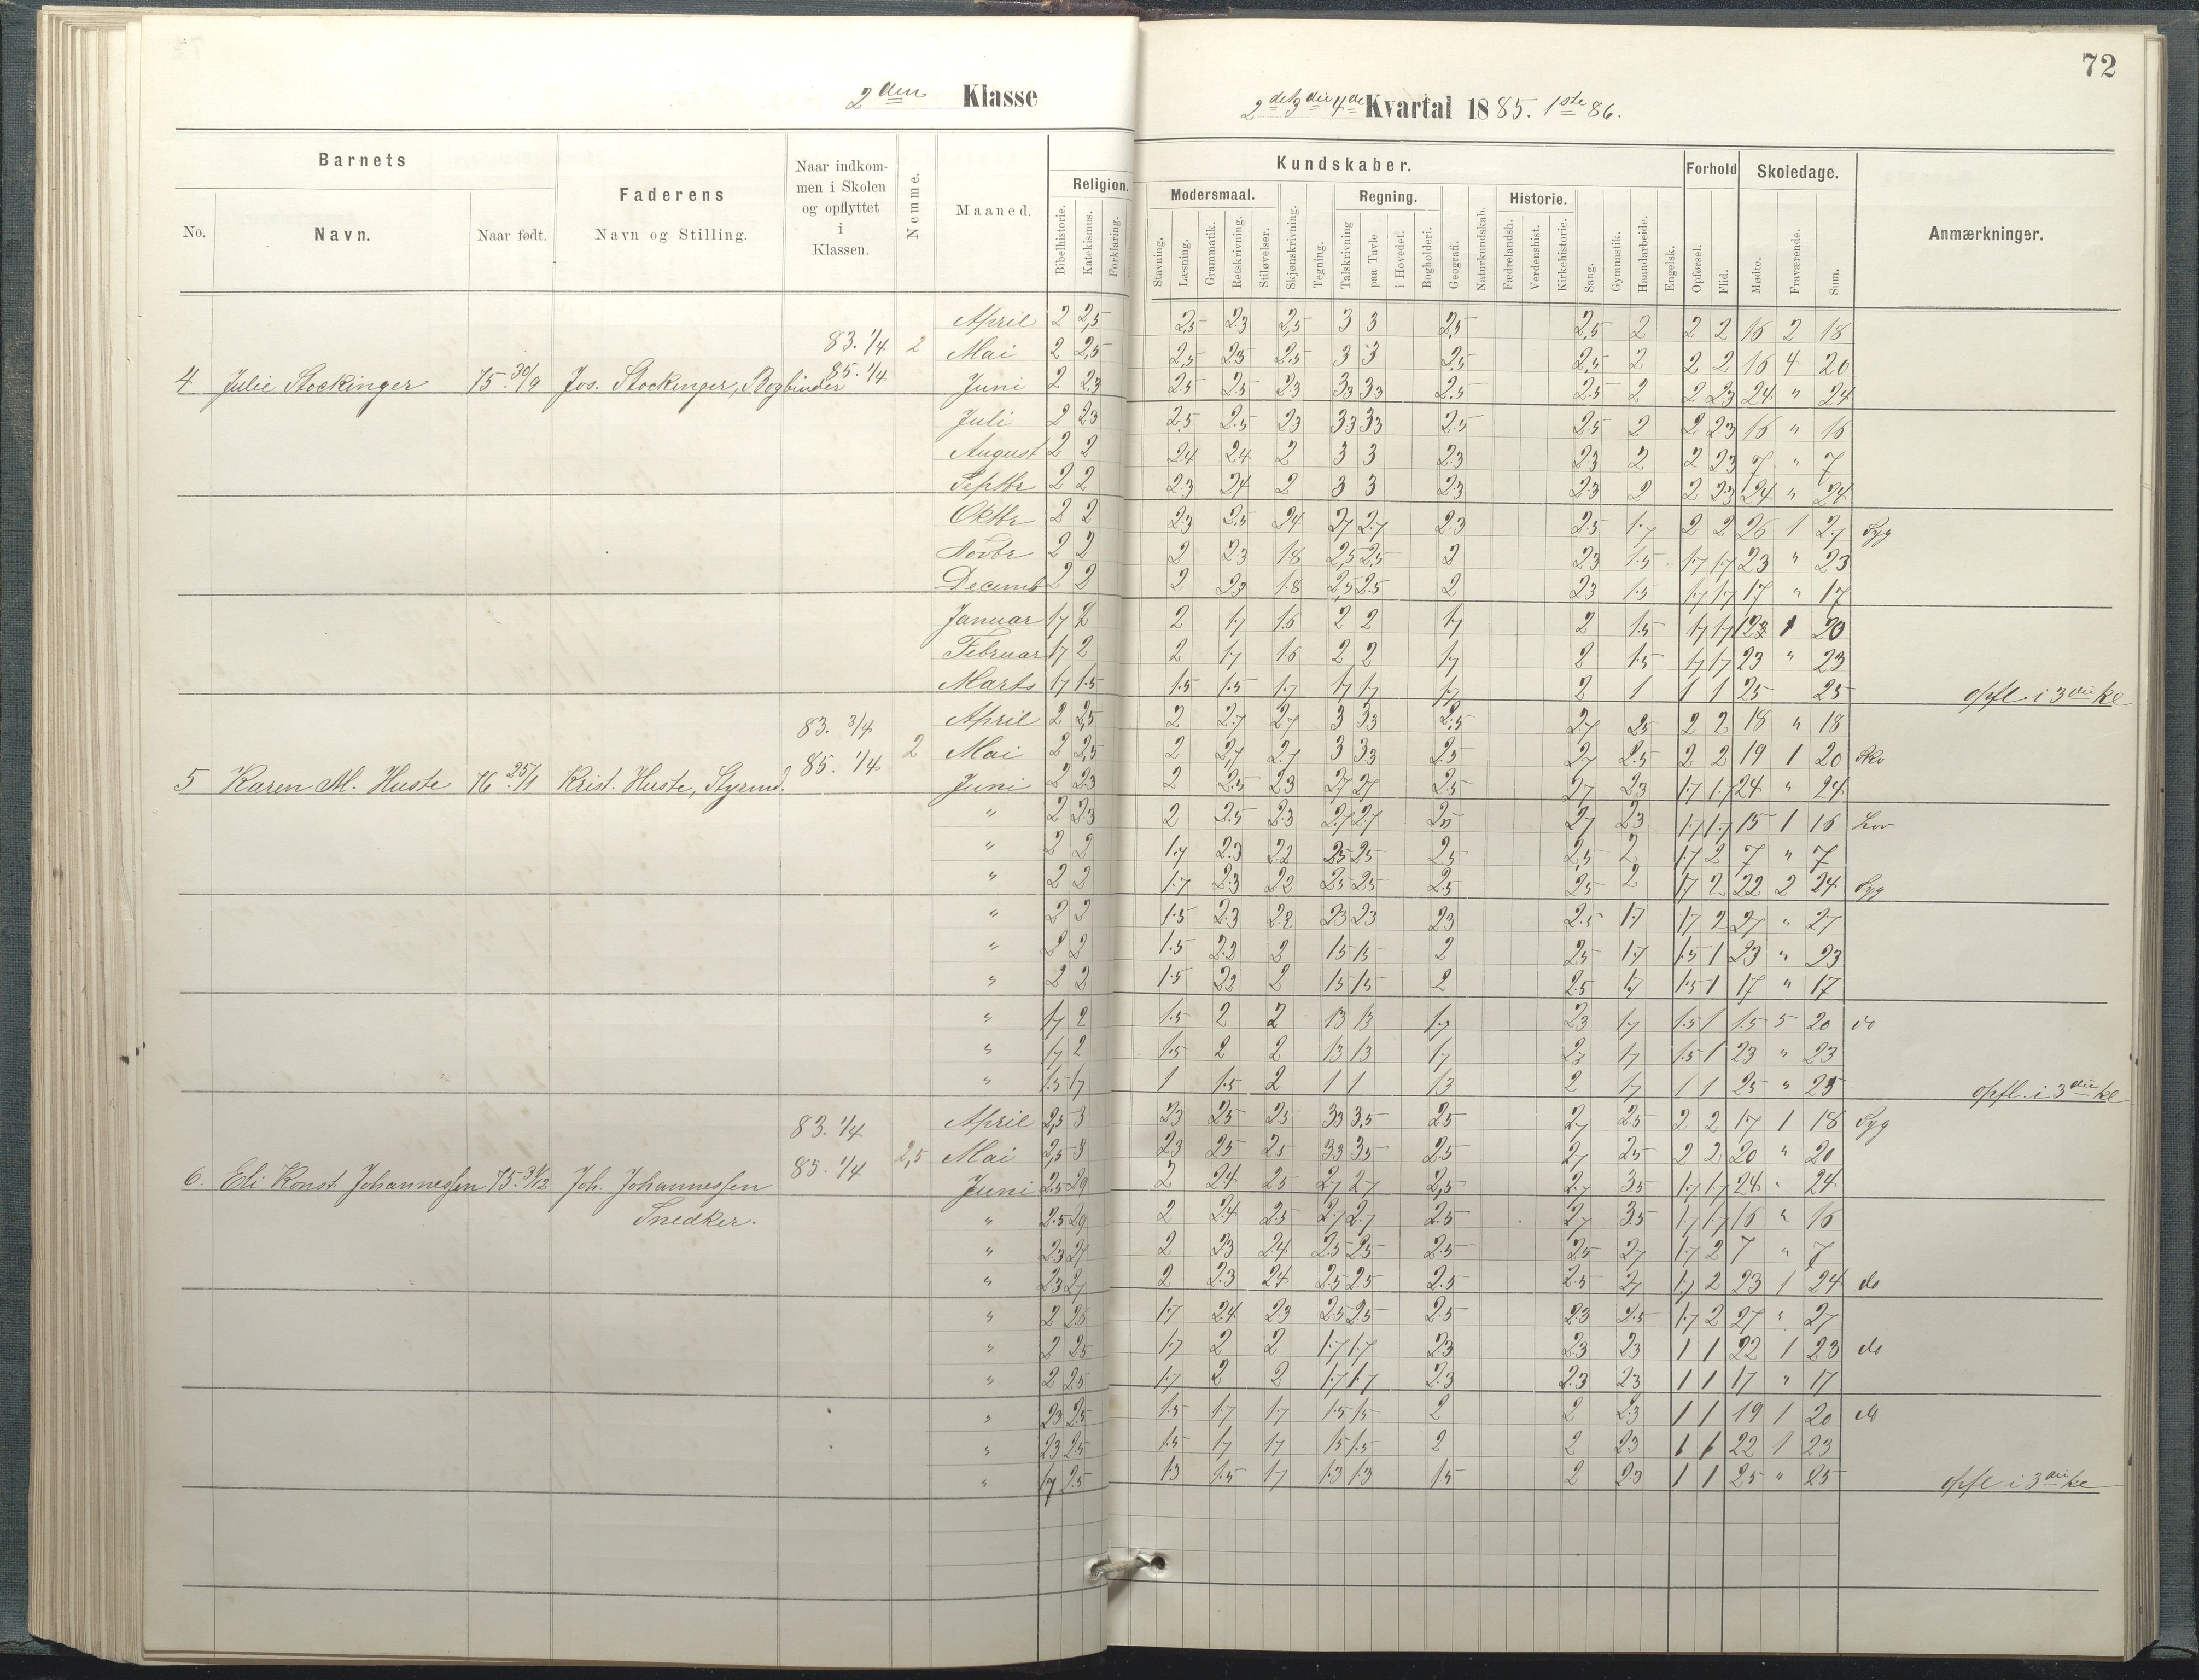 72
2den Klasse
2det 3die 4de Kvartal 1885. 1ste 86.
Barnets
No.
Navn.
Naar født.
Faderens
Navn og Stilling.
Naar indkom-
men i Skolen
og opflyttet
i
Klassen.
Nemme.
Maaned.
Religion.
Bibelhistorie.
Katekismus.
Forklaring.
Kundskaber.
Modersmaal.
Stavning.
Læsning.
Grammatik.
Retskrivning.
Stiløvelser.
Skjønskrivning.
Tegning.
Regning.
Talskrivning
paa Tavle
i Hovedet.
Bogholderi.
Geografi.
Naturkundskab.
Historie.
Fædrelandsh.
Verdenshist.
Kirkehistorie.
Sang.
Gymnastik.
Haandarbeide.
Engelsk.
Forhold
Opførsel.
Flid.
Skoledage.
Mødte.
Fraværende.
Sum.
Anmærkninger.
April 2 2,5 2,5 2.3 2,5 3 3 2,5 2,5 2 2 2 16 2 18
83. 1/4 2 Mai 2 2,5 2,5 2.5 2.5 3 3 2,5 2,5 2 2 2 16 4 20
4 Julie Stockinger 75. 30/9 Jos. Stockinger, Bogbinder 85. 1/4 Juni 2 2.3 2.5 2.5 2.3 33 33 2.5 2.5 2 2 2.3 24 " 24
Juli 2 2.3 2.5 2.5 2.3 33 33 2.5 2.5 2 2 2.3 16 " 16
August 2 2 2.4 2.4 2 3 3 2.3 2.3 2 2 2.3 7 " 7
Septbr 2 2 2.3 2.4 2 3 3 2.3 2.3 2 2 2.3 24 " 24
Oktbr 2 2 2.3 2.5 2.4 2.7 2.7 2.3 2.5 1.7 2 2 26 1 27 Syg
Novbr 2 2 2 2.3 1.8 2,5 2.5 2 2.3 1.5 1.7 1.7 23 " 23
Decemb 2 2 2 2.3 1.8 2,5 2.5 2 2.3 1.5 1.7 1.7 17 " 17
Januar 1.7 2 2 1.7 1.6 2 2 1.7 2 1.5 1.7 1.7 1 20
Februar 1.7 2 2 1.7 1.6 2 2 1.7 2 1.5 1.7 1.7 23 " 23
Marts 1.7 1.5 1.5 1.5 1.7 1.7 1.7 1.7 2 1 1 1 25 25 opfl i 3die kl
83. 3/4 April 2 2,5 2 2.7 2.7 3 33 2.5 2.7 2.5 2 2 18 " 18
85. 1/4 2 Mai 2 2,5 2 2,7 2.7 3 33 2.5 2.7 2.5 2 2 19 1 20 Sko
5 Karen M. Huste 76. 25/1 Krist. Huste, Styrmd. Juni 2 2.3 2 2.5 2.3 2.7 2.7 2.5 2.7 2.3 1.7 1.7 24 " 24
" 2 2.3 2 2.5 2.3 2.7 2.7 2.5 2.7 2.3 1.7 1.7 15 1 16 Lov
" 2 2 1.7 2.3 2.2 2.5 2.5 2.5 2,5 2 1.7 2 7 " 7
" 2 2 1.7 2.3 2.2 2.5 2.5 2.5 2.5 2 1.7 2 22 2 24 Syg
" 2 2 1.5 2.3 2.2 2.3 2.3 2.3 2.5 1.7 1.7 2 27 " 27
" 2 2 1.5 2.2 2 1.5 1.5 2 2.5 1.7 1.5 1 23 " 23
" 2 2 1.5 2.2 2 1.5 1.5 2 2.5 1.7 1.5 1 17 " 17
" 1.7 2 1.5 2 2 1.3 1.3 1.7 2.3 1.7 1.5 1 15 5 20 do
" 1.7 2 1.5 2 2 1.3 1.3 1.7 2.3 1.7 1.5 1 23 " 23
" 1.5 1.7 1 1.5 2 1 1 1.3 2 1.7 1 1 25 " 25 opfl. i 3die kl
83. 1/4 April 2,5 3 2.3 2.5 2.5 33 3.5 2.5 2.7 2.5 2 2 17 1 18 Syg
85. 1/4 2,5 Mai 2,5 3 2.3 2.5 2.5 33 3.5 2.5 2.7 2.5 2 2 20 " 20
6. Eli Konst. Johannesſen 75. 31/12 Joh. Johannesſen Juni 2.5 2.9 2 2.4 2.5 2.7 2.7 2,5 2.7 3.5 1.7 1.7 24 " 24
Snedker. " 2.5 2.9 2 2.4 2.5 2.7 2.7 2.5 2.7 3.5 1.7 1.7 16 " 16
" 2.3 2.7 2 2.3 2.4 2.5 2.5 2.5 2.5 2.7 1.7 2 7 " 7
" 2.3 2.7 2 2.3 2.4 2.5 2.5 2.5 2.5 2.7 1.7 2 23 1 24 do
" 2 2.6 1.7 2.4 2.3 2.5 2.5 2.5 2.3 2.5 1.7 2 27 " 27
" 2 2.5 1.7 2 2 1.7 1.7 2.3 2.3 2.3 1 1 22 1 23 do
" 2 2.5 1.7 2 2 1.7 1.7 2.3 2.3 2.3 1 1 17 " 17
" 2.3 2.5 1.5 1.7 1.7 1.5 1.5 2 2 2.3 1 1 19 1 20 do
" 2.3 2.5 1.5 1.7 1.7 1.5 1.5 2 2 2.3 1 1 22 1 23
" 1.7 2.5 1.3 1.5 1.7 1.3 1.3 1.5 2 2.3 1 1 25 " 25 opfl i 3die kl